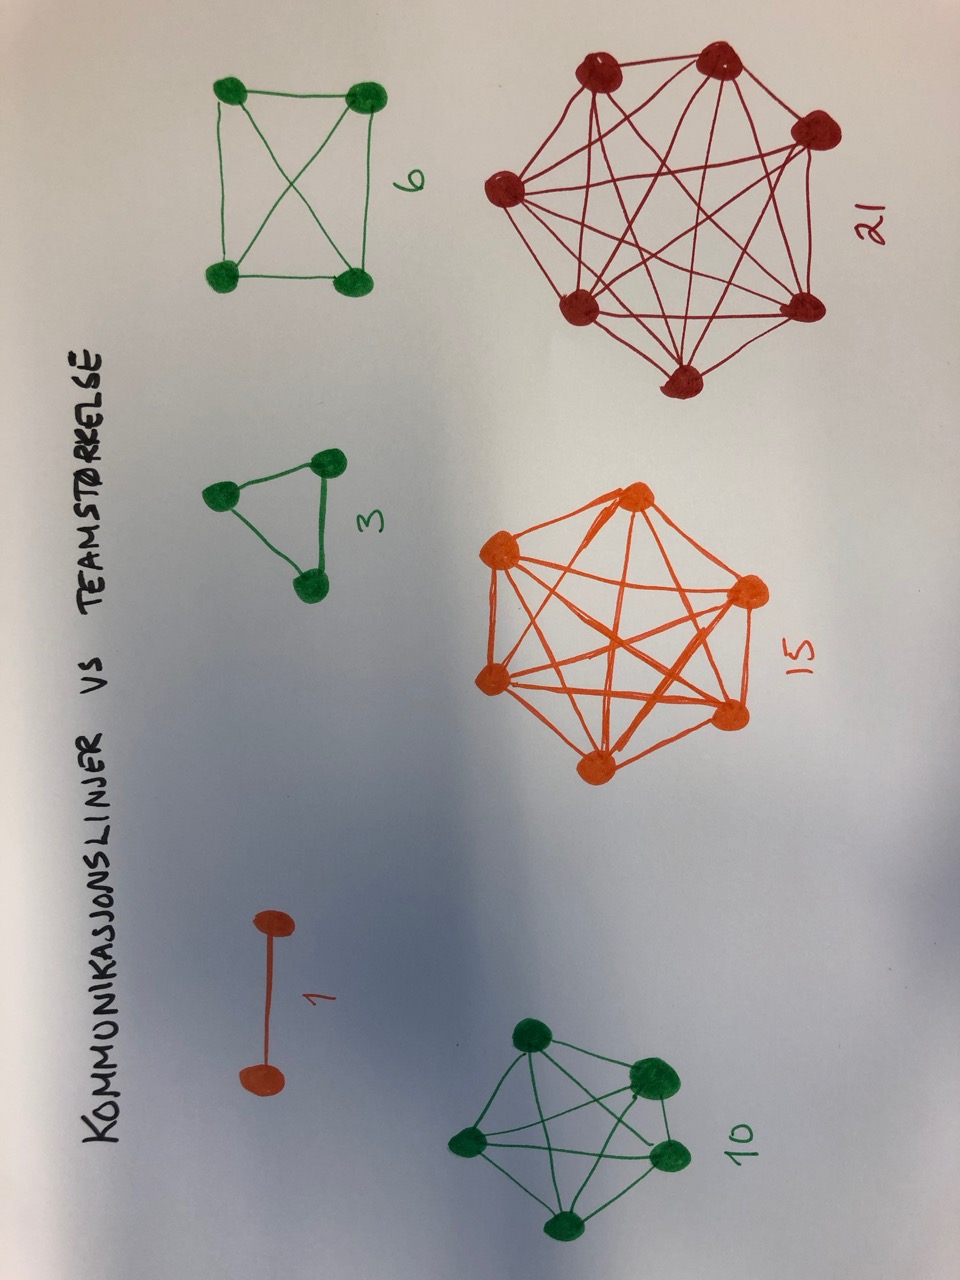 KOMMUNIKASJONSLINJER VS TEAMSTØRKELSE
1
3
6
10
15
21